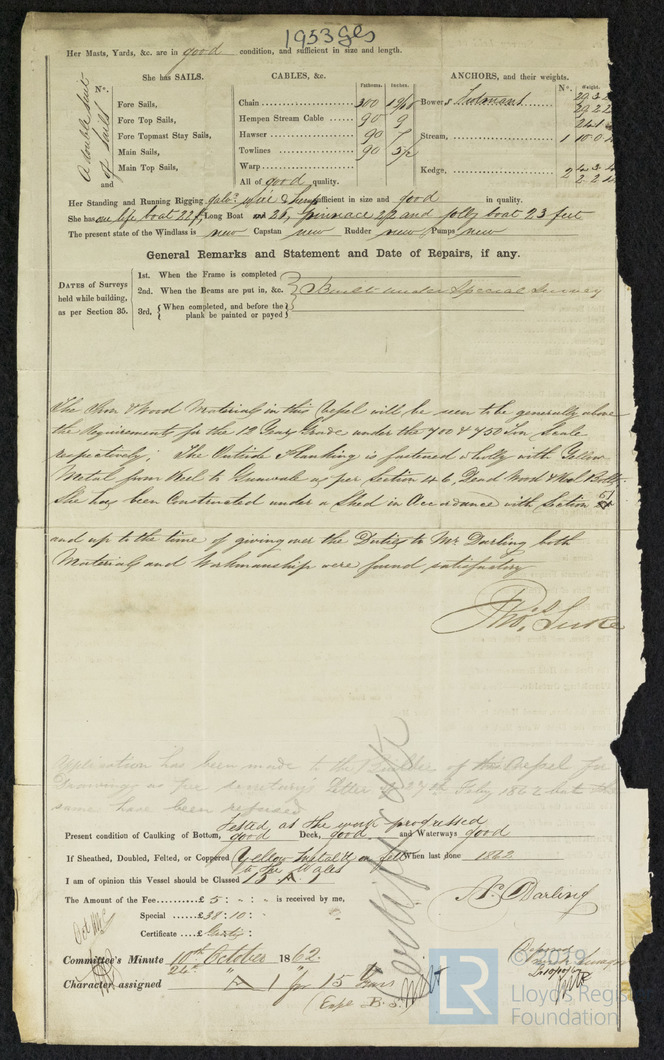 1953 Gls
Her Masts, Yards, &c. are in good condition, and sufficient in size and length.
She has SAILS. CABLES, &c. ANCHORS, and their weights.
N°. Fathoms. Inches. N°. Weight.
A double suit of sails
Fore Sails, Chain 300 Bowers
Fore Top Sails, Hempen Stream Cable 90 9
Fore Topmast Stay Sails, Hawser 90 7 Stream, 1
Main Sails, Towlines 90
Main Top Sails, Warp Kedge, 2
and All of good quality.
Her Standing and Running Rigging galv. wire & hemp sufficient in size and good in quality.
She has one life boat 22 ft Long Boat and 28, pinnace 22 and jolly boat 23 feet
The present state of the Windlass is new Capstan new Rudder new Pumps new
General Remarks and Statement and Date of Repairs, if any.
DATES of Surveys held while building, as per Section 35.
1st. When the Frame is completed
2nd. When the Beams are put in, &c. Built under Special Survey
3rd. When completed, and before the plank be painted or payed
The Iron & Wood Materials in this Vessel will be seen to be generally above
the Requirements for the 12 Years Grade under the 700 & 750 Ton Scale
respectively; The Outside Planking is fastened wholly with Yellow
Metal from Keel to Gunwale as per Section 46, Dead Wood & Keel Bolts.
She has been Constructed under a Shed in Accordance with Section 51
and up to the time of giving over the Duties to Mr. Darling both
Materials and Workmanship were found satisfactory
Application has been made to the Builder of this Vessel for
Drawings as per Secretary's Letter of 27th Feby 1862 but the
same have been refused
Tested as the work progressed
Present condition of Caulking of Bottom, good Deck, good and Waterways good
If Sheathed, Doubled, Felted, or Coppered Yellow Metal on felt When last done 1862
to the Wales
I am of opinion this Vessel should be Classed A 1
The Amount of the Fee £ 5 : - : - is received by me,
Special £38 : 10 : -
Certificate £
A. Darling
Committee's Minute 10th October 1862.
24th " "
Character assigned A 1 for 15 Years
(Expd B.S.)
LR
© 2019
Lloyd's Regis
Foundation